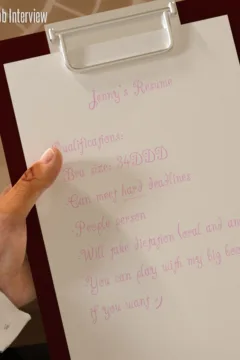 ob Interview
Jenny's Resume
Qualifications:
·Bra size: 34DDD
·Can meet hard deadlines
·People person
·Will take dictation (oral and
·You can play with my big
if you want ;)